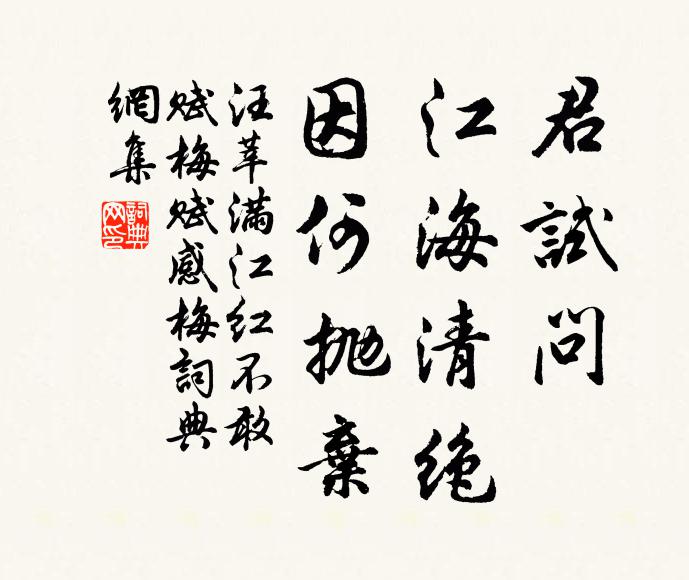 君試問
江海清絶
因何抛棄
汪莘滿江紅不敢
賦梅賦感梅詞典
網集
詞典
网印